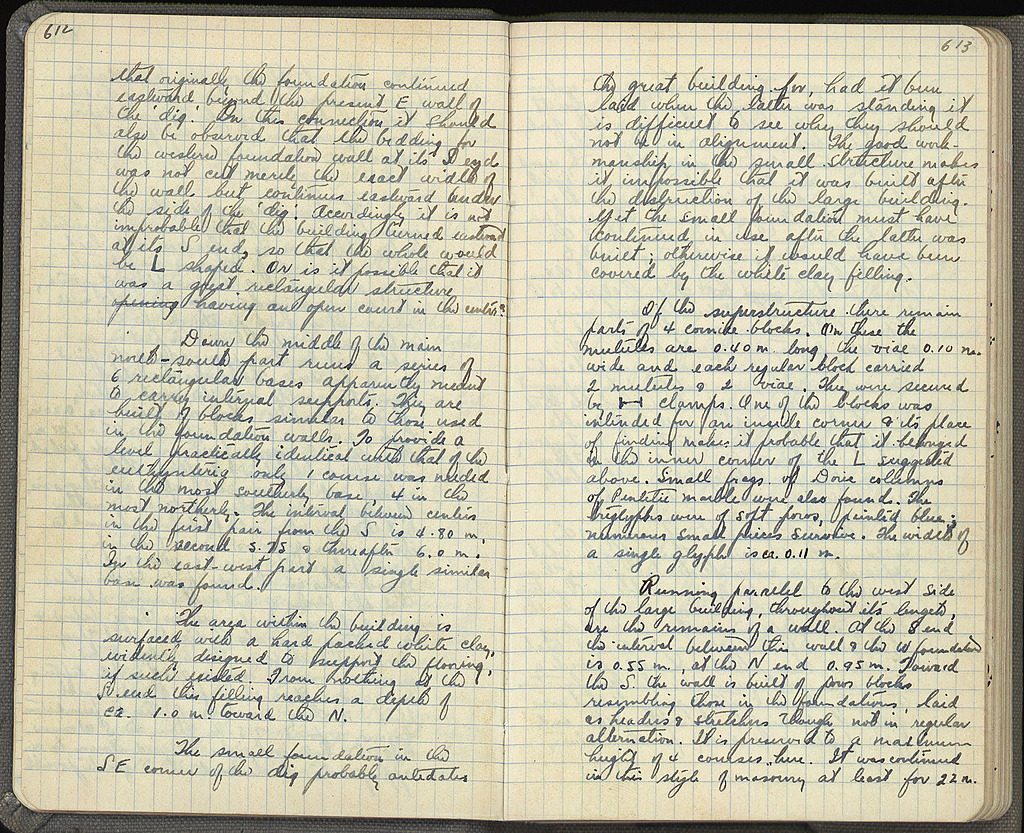 612
that originally the foundation continued
eastward beyond the present E wall of
the dig. In this connection it should
also be observed that the bedding for
the western foundation wall at its S end
was not cut merely the exact width of
the wall but continues eastward under
the side of the dig. Accordingly it is not
improbable that the building turned eastward
at its S end, so that the whole would
be L shaped. Or is it possible that it
was a great rectangular structure
opening having an open court in the centre?
Down the middle of the main
north-south part runs a series of
6 rectangular bases apparently meant
to carry internal supports. They are
built of blocks similar to those used
in the foundation walls. To provide a
level practically identical with that of the
euthynteria, only 1 course was needed
in the most southerly base, 4 in the
most northerly. The interval between centres
in the first pair from the S is 4.80 m,
in the second 5.75 & thereafter 6.0 m.
In the east-west part a single similar
base was found.
The area within the building is
surfaced with a hard packed white clay,
evidently designed to support the flooring,
if such existed. From nothing at the
S end this filling reaches a depth of
ca. 1.0 m toward the N.
The small foundation in the
SE corner of the dig probably antedates
613
the great building for, had it been
laid when the latter was standing it
is difficult to see why they should
not be in alignment. The good work-
manship in the small structure makes
it impossible that it was built after
the destruction of the large building.
Yet the small foundation must have
continued in use after the latter was
built; otherwise it would have been
covered by the white clay filling.
Of the superstructure there remain
parts of 4 cornice blocks. On these the
mutules are 0.40 m long the viae 0.10 m
wide and each regular block carried
2 mutules & 2 viae. They were secured
by clamps. One of the blocks was
intended for an inside corner & its place
of finding makes it probable that it belonged
in the inner corner of the L suggested
above. Small frags of Doric columns
of Pentelic marble were also found. The
triglyphs were of soft poros, painted blue;
numerous small pieces survive. The width of
a single glyph is ca. 0.11 m.
Running parallel to the west side
of the large building, throughout its length,
are the remains of a wall. At the S end
the interval between this wall & the W foundation
is 0.55 m, at the N end 0.95 m. Toward
the S. the wall is built of poros blocks
resembling those in the foundations, laid
as headers & stretchers though not in regular
alternation. It is preserved to a maximum
height of 4 courses here. It was continued
in this style of masonry at least for 22 m.